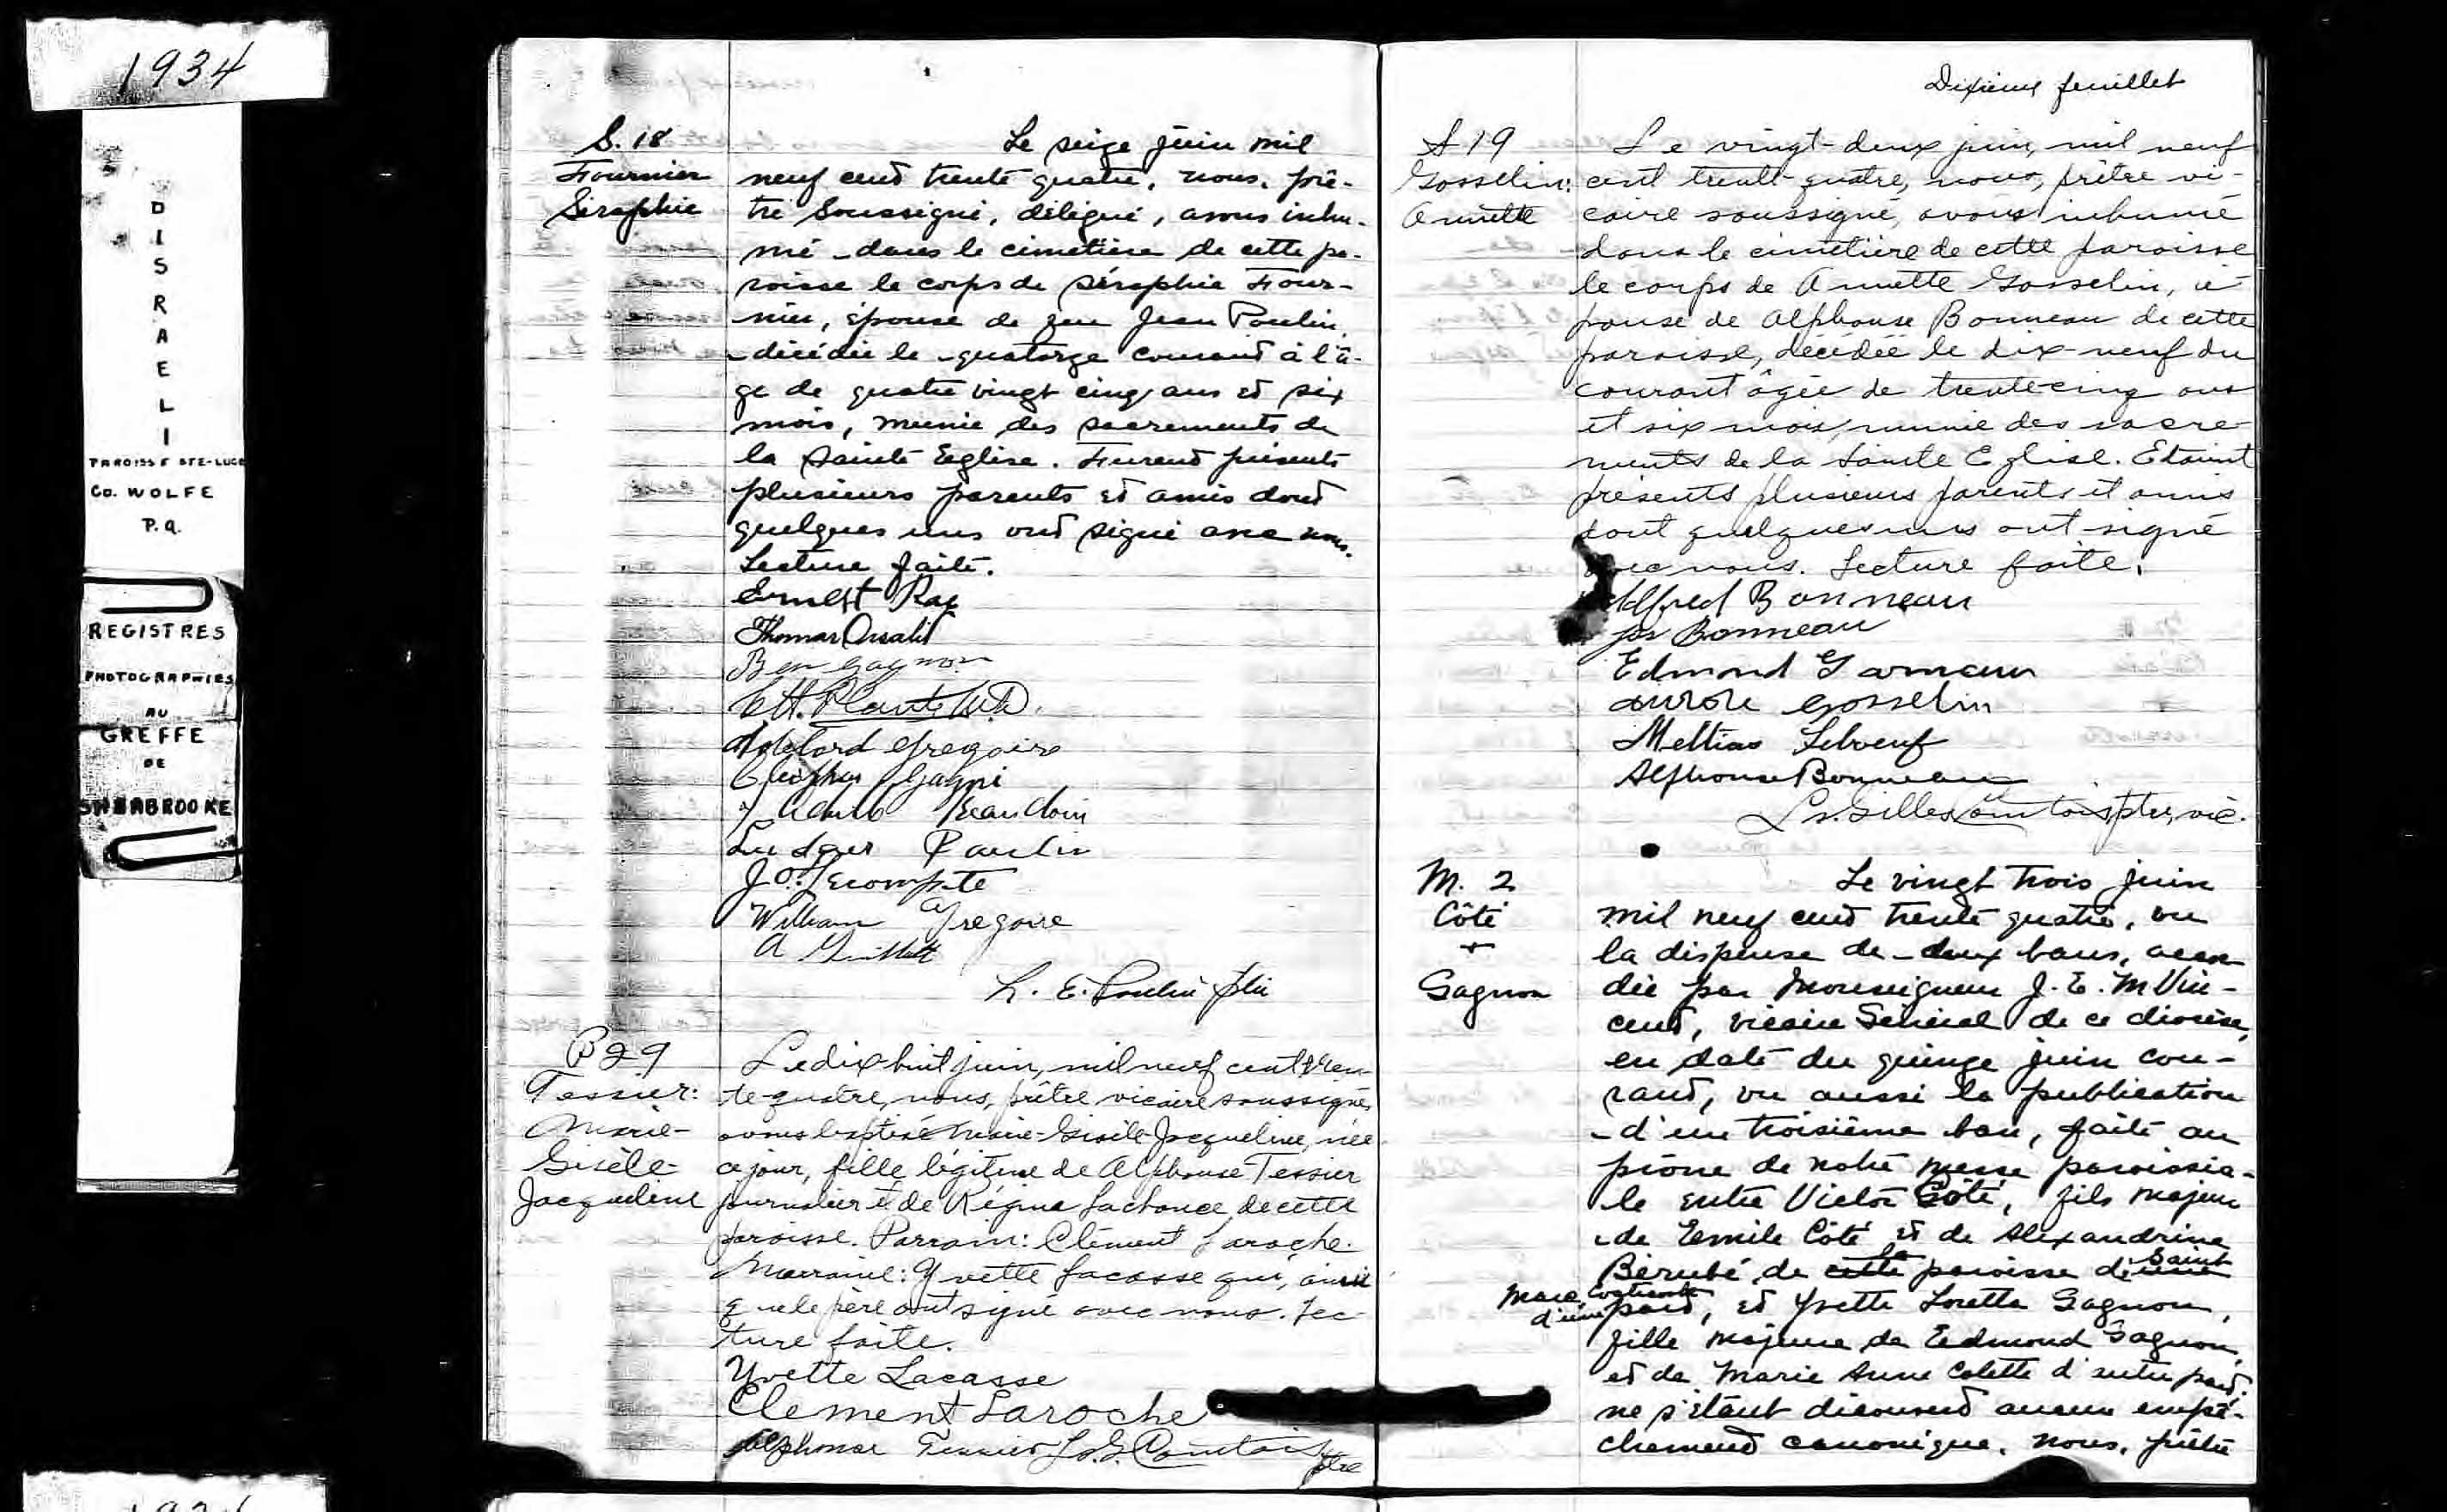 1934
DISRAELI
PAROISSE STE-LUCE
Co. WOLFE
P.Q.
REGISTRES
PHOTOGRAPHIES
AU
GREFFE
DE
SHERBROOKE
S. 18
Fournier
Séraphie
Le seize juin mil
neuf cent trente quatre, nous, prê-
tre soussigné, délégué, avons inhu-
mé dans le cimetière de cette pa-
roisse le corps de Séraphie Four-
nier, épouse de feu Jean Poulin,
décédée le quatorze courant à l'â-
ge de quatre vingt cinq ans et six
mois, munie des sacrements de
la Sainte Eglise. Furent présents
plusieurs parents et amis dont
quelques uns ont signé avec nous.
Lecture faite.
Ernest
Thomas
Ben Gagnon
Plante M.D.
Adélard Gregoire
Cléophas Gagné
Beaudoin
Ludger Poulin
J. O. Lecompte
William Gregoire
A
L. E. Poulin ptre
B 29
Tessier:
Marie-
Gisèle-
Jacqueline
Le dix huit juin, mil neuf cent tren-
te-quatre, nous, prêtre vicaire soussigné,
avons baptisé Marie-Gisèle-Jacqueline, née
ce jour, fille légitime de Alphonse Tessier
journalier et de Régina Lachance de cette
paroisse. Parrain: Clément Laroche.
Marraine: Yvette Lacasse qui, ainsi
que le père ont signé avec nous. Lec-
ture faite.
Yvette Lacasse
Clement Laroche
Alphonse Tessier L. G. Comtois ptre
Dixième feuillet
S 19
Gosselin:
Annette
Le vingt-deux juin, mil neuf
cent trente-quatre, nous, prêtre vi-
caire soussigné, avons inhumé
dans le cimetière de cette paroisse
le corps de Annette Gosselin, é-
pouse de Alphonse Bonneau de cette
paroisse, décédée le dix-neuf du
courant âgée de trente-cinq ans
et six mois, munie des sacre-
ments de la Sainte Eglise. Etaient
présents plusieurs parents et amis
dont quelques uns ont signé
avec nous. Lecture faite.
Alfred Bonneau
Jos Bonneau
Edmond Garneau
Aurore Gosselin
Mettias Leboeuf
Alphonse Bonneau
Ls. Gilles Comtois, ptre, vic.
M. 2
Côté
+
Gagnon
Le vingt trois juin
mil neuf cent trente quatre, vu
la dispense de deux bans, accor
dée par Monseigneur J. E. M Vin-
cent, vicaire Général de ce diocèse,
en date du quinze juin cou-
rant, vu aussi la publication
d'un troisième ban, faite au
prône de notre messe paroissia-
le entre Victor Côté, fils majeur
de Emile Côté et de Alexandrine
Bérubé de cette la paroisse d'une Saint
Marc, Coaticook
d'une part, et Yvette Loretta Gagnon,
fille majeure de Edmond Gagnon
et de Marie Anne Colette d'autre part;
ne s'étant découvert aucun empê-
chement canonique, nous, prêtre